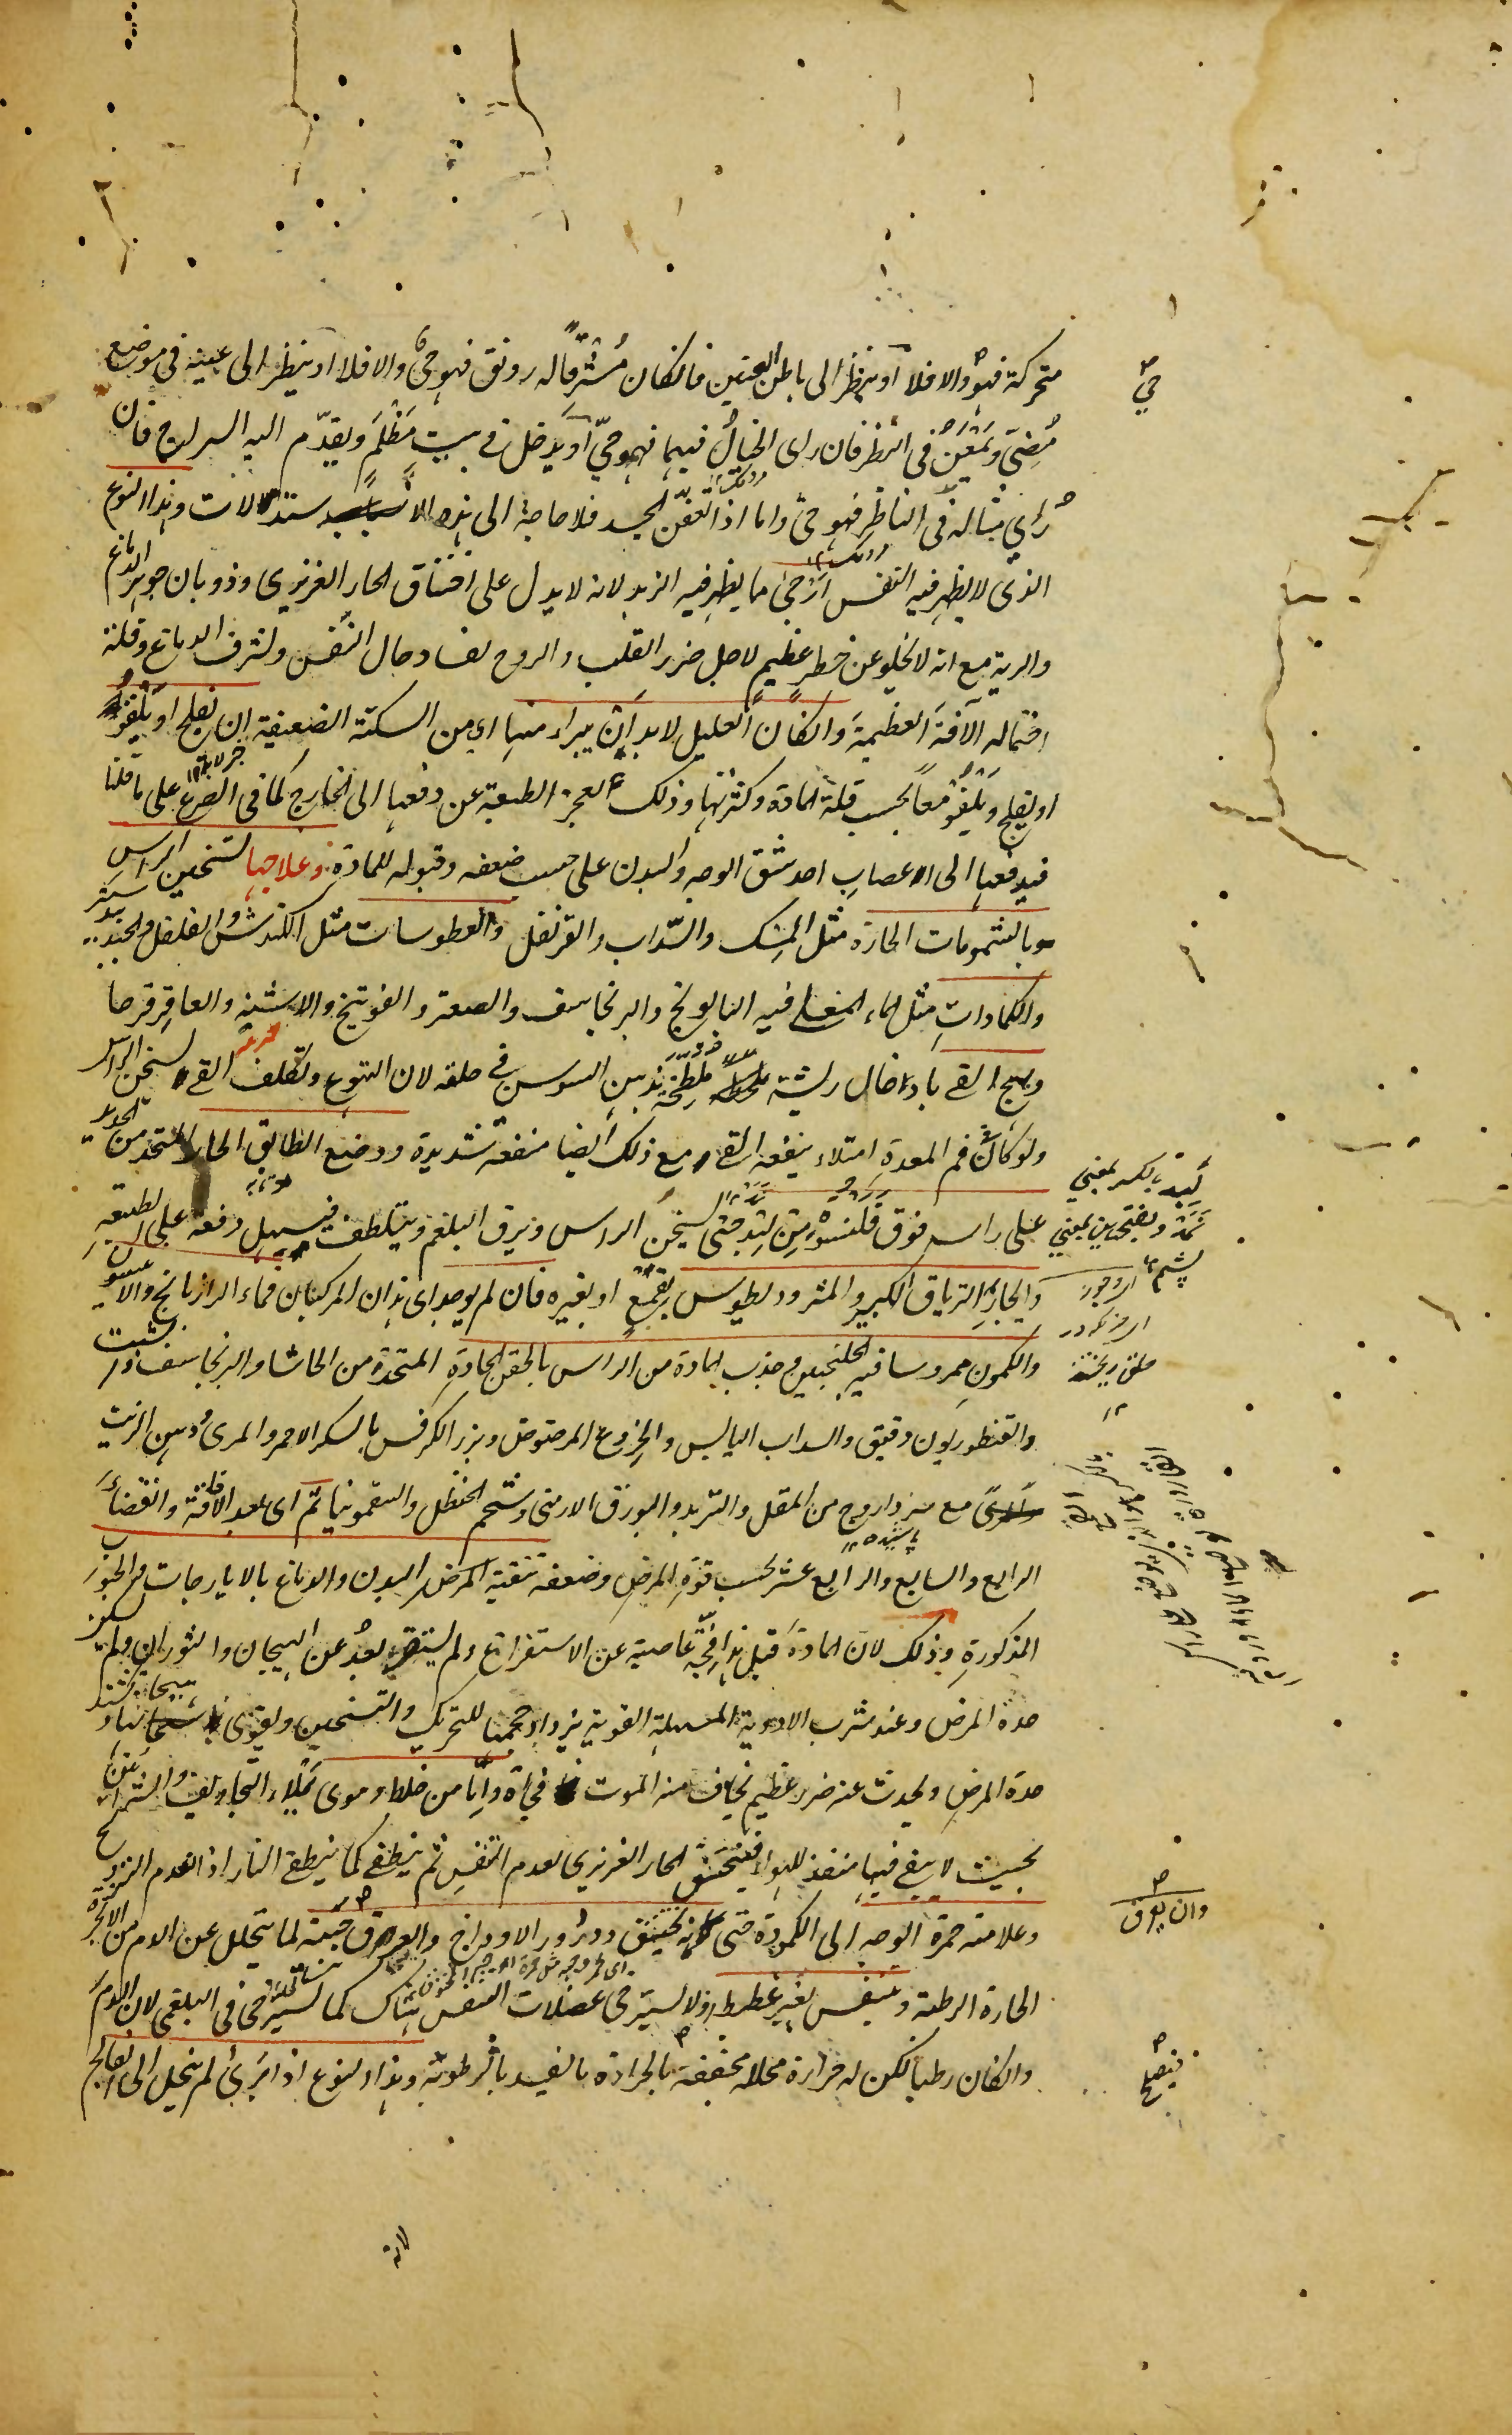 متحركة فهو والا فلا او ينظر الى باطن العينين فانكان مشرقا له رونق فهو حى والا فلا او ينظر الى عينيه فى موضع
مضئ ويمعن فى النظر فان راى الخيال فيهما فهو حىّ او يدخل فى بيت مظلم ويقدّم اليه السراج فان
رُاى مثاله فى الناظر فهو حى واما اذا تعفّن الجسد فلا حاجة الى هذه الاستدلالات وهذا النوع
الذى لا يظهر فيه النفس ارجى مما يظهر فيه الزبد لانه لا يدل على اختناق الحار الغريزى وذوبان جوهر الدماغ
والرية مع انه لا يخلو عن خطر عظيم لاجل ضرر القلب والروح لفساد حال النفس ولشرف الدماغ وقلة
احتماله الآفة العظيمة وانكان العليل لابد ان يبراء منها اى من السكتة الضعيفة ان يفلج او يلقو
او يفلج ويلقو معا بحسب قلة المادة وكثرتها وذلك لعجز الطبيعة عن دفعها الى الخارج كما فى الصرع على ما قلنا
فيدفعها الى الاعصاب احد شقى الوجه والبدن على حسب ضعفه وقبوله للمادة وعلاجها تسخين الراس
وبالشمومات الحارة مثل المسك والسّداب والقرنفل والعطوسات مثل الكندش والفلفل والجندبيدستر
والكمادات مثل الماء المغلى فيه البابونج والبرنجاسف والصعتر والفوتنج والاشنه والعاقرقرحا
ويهيج القى بادخال ريشة ملطخة بدهن السوسن فى حلقه لان التهوع وتكلف القى يسخن الراس
ولو كان فى فم المعدة امتلاء ينفعه القى مع ذلك ايضا منفعة شديدة ووضع الطابق الحار المتخذ من الحديد
على راسه فوق قلنسوة من لبد حتى يسخن الراس ويرق البلغم ويتلطف فيسهل دفعه على الطبيعة
وايجار الترياق الكبير والمثروديطوس بقمع او بغيره فان لم يوجد اى هذان المركبان فماء الرازيانج والانيسون
والكمون ممروسا فيه الجلنجبين وجذب المادة من الراس بالحقن الحادة المتخذة من الحاشا والبرنجاسف والشبت
والقنطوريون دقيق والسداب اليابس والخروع المرضوض وبزر الكرفس بالسكر الاحمر والمرى ودهن الزيت
مع من المقل والتربد والبورق الارمنى وشحم الحنظل والسقمونيا ثم اى بعد الافاقة وانقضاء
الرابع والسابع والرابع عشر بحسب قوة المرض وضعفه تنقية البدن والدماغ بالايارجات والحبوب
المذكورة وذلك لان المادة قبل هذا فجّة عاصية عن الاستفراغ ولم يستقر بعد عن الهيجان والثوران ولم يسكن
حدة المرض وعند شرب الادوية المسهلة القوية يزداد حجمها للتحريك والتسخين ويقوى هيجانها ويشتد
حدة المرض ويحدث عنه ضرر عظيم يخاف منه الموت فجاءة وامّا من خلط دموى يملاء التجاويف والشرائين
بحيث لا يبقى فيها منفذ للهواء فيختنق الحار الغريزى لعدم التنفس ثم ينطفى كما ينطفى النار اذا انعدم الترويح
وعلامته حمرة الوجه الى الكمودة حتى كانه يختنق ودرور الاوداج والعرق جبينه لما يتحلل عن الدم من الابخرة
الحارة الرطبة ويتنفس بغير غطيط اذ لا يسترخى عضلات التنفس هناك كما يسترخى فى البلغمى لان الدم
وانكان رطبا لكن له حرارة محللة مجففة بالحرارة ما يفسد بالرطوبة وهذا النوع اذا برئ لم ينحل الى الفالج
حىّ
لبد بالكسر بمعنى
نمد وبفتحتين بمعنى
پشم ١٢
حلق ريختن
١٢
وان يعرق
فينضج
لانه